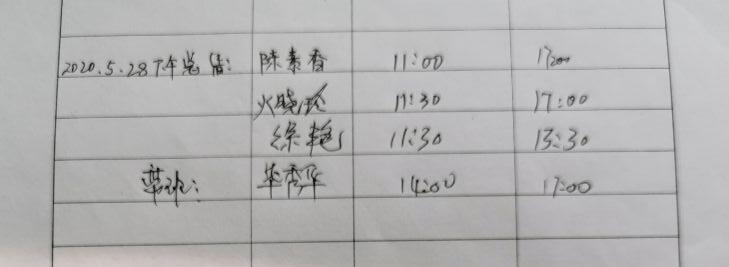 2020.5.28 下午总值: 陈素香 11:00 17:00
火晓玲 11:30 17:00
徐艳 11:30 13:30
带班: 毕秀华 14:00 17:00